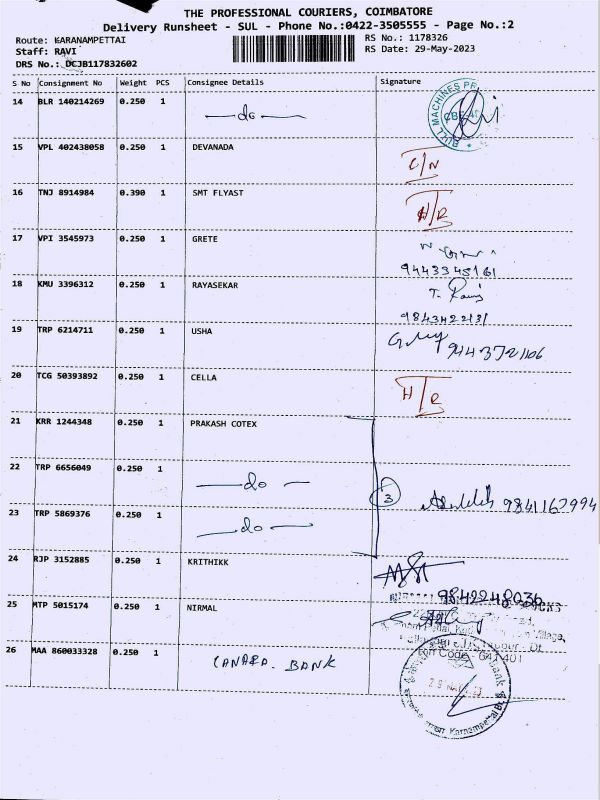 THE PROFESSIONAL COURIERS, COIMBATORE
Delivery Runsheet - SUL - Phone No.:0422-3505555 - Page No.:2
Route: KARANAMPETTAI
RS No.: 1178326
Staff: RAVI
RS Date: 29-May-2023
DRS No.: DCJB117832602
S No Consignment No Weight PCS Consignee Details Signature
14 BLR 140214269 0.250 1 —do—
BULL MACHINES
15 VPL 402438058 0.250 1 DEVANADA C/N
16 TNJ 8914984 0.390 1 SMT FLYAST H/R
17 VPI 3545973 0.250 1 GRETE
9443345161
18 KMU 3396312 0.250 1 RAYASEKAR T. Ravi
9843422131
19 TRP 6214711 0.250 1 USHA 9443721106
20 TCG 50393892 0.250 1 CELLA H/R
21 KRR 1244348 0.250 1 PRAKASH COTEX
22 TRP 6656049 0.250 1 —do— 3 9841162994
23 TRP 5869376 0.250 1 —do—
24 RJP 3152885 0.250 1 KRITHIKK
9842248036
25 MTP 5015174 0.250 1 NIRMAL
Code - 641 401
26 MAA 860033328 0.250 1 CANARA BANK